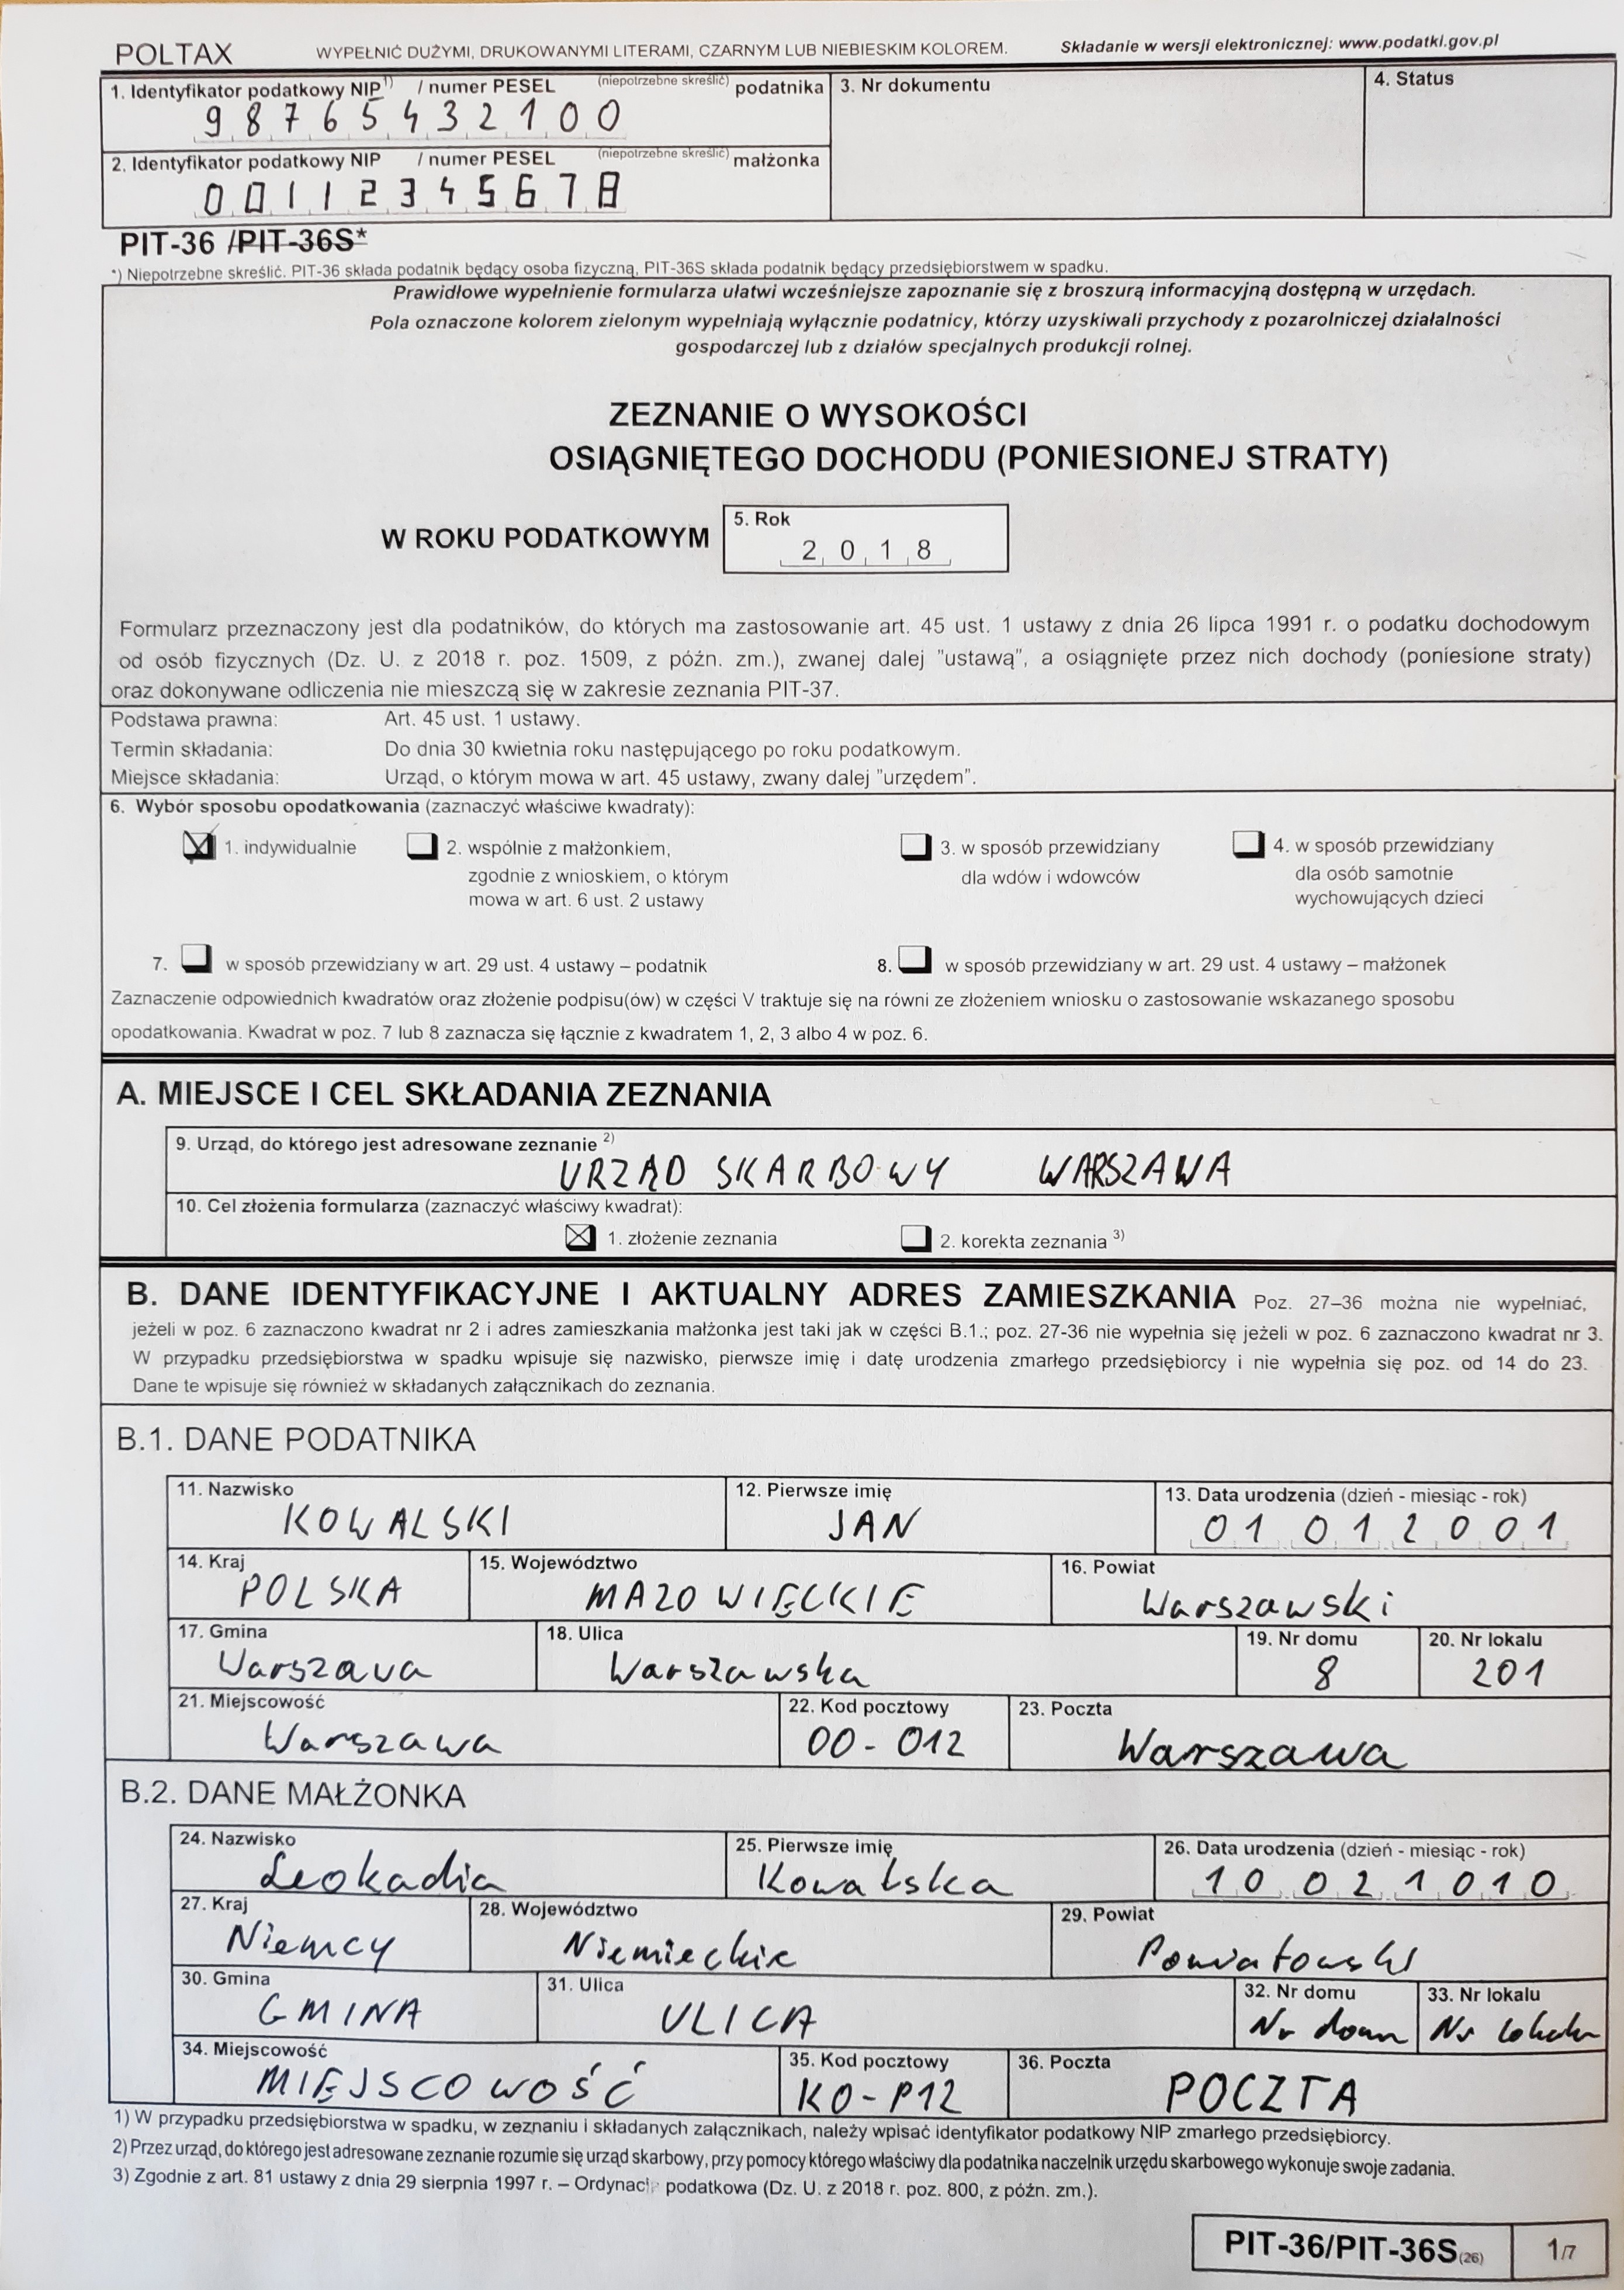 POLTAX WYPEŁNIĆ DUŻYMI, DRUKOWANYMI LITERAMI, CZARNYM LUB NIEBIESKIM KOLOREM. Składanie w wersji elektronicznej: www.podatki.gov.pl
1. Identyfikator podatkowy NIP1) / numer PESEL (niepotrzebne skreślić) podatnika
98765432100
3. Nr dokumentu
4. Status
2. Identyfikator podatkowy NIP / numer PESEL (niepotrzebne skreślić) małżonka
00112345678
PIT-36 /PIT-36S*
*) Niepotrzebne skreślić. PIT-36 składa podatnik będący osoba fizyczną, PIT-36S składa podatnik będący przedsiębiorstwem w spadku.
Prawidłowe wypełnienie formularza ułatwi wcześniejsze zapoznanie się z broszurą informacyjną dostępną w urzędach.
Pola oznaczone kolorem zielonym wypełniają wyłącznie podatnicy, którzy uzyskiwali przychody z pozarolniczej działalności
gospodarczej lub z działów specjalnych produkcji rolnej.
ZEZNANIE O WYSOKOŚCI
OSIĄGNIĘTEGO DOCHODU (PONIESIONEJ STRATY)
W ROKU PODATKOWYM
5. Rok
2018
Formularz przeznaczony jest dla podatników, do których ma zastosowanie art. 45 ust. 1 ustawy z dnia 26 lipca 1991 r. o podatku dochodowym
od osób fizycznych (Dz. U. z 2018 r. poz. 1509, z późn. zm.), zwanej dalej "ustawą", a osiągnięte przez nich dochody (poniesione straty)
oraz dokonywane odliczenia nie mieszczą się w zakresie zeznania PIT-37.
Podstawa prawna: Art. 45 ust. 1 ustawy.
Termin składania: Do dnia 30 kwietnia roku następującego po roku podatkowym.
Miejsce składania: Urząd, o którym mowa w art. 45 ustawy, zwany dalej "urzędem".
6. Wybór sposobu opodatkowania (zaznaczyć właściwe kwadraty):
1. indywidualnie
2. wspólnie z małżonkiem,
zgodnie z wnioskiem, o którym
mowa w art. 6 ust. 2 ustawy
3. w sposób przewidziany
dla wdów i wdowców
4. w sposób przewidziany
dla osób samotnie
wychowujących dzieci
7. w sposób przewidziany w art. 29 ust. 4 ustawy – podatnik
8. w sposób przewidziany w art. 29 ust. 4 ustawy – małżonek
Zaznaczenie odpowiednich kwadratów oraz złożenie podpisu(ów) w części V traktuje się na równi ze złożeniem wniosku o zastosowanie wskazanego sposobu
opodatkowania. Kwadrat w poz. 7 lub 8 zaznacza się łącznie z kwadratem 1, 2, 3 albo 4 w poz. 6.
A. MIEJSCE I CEL SKŁADANIA ZEZNANIA
9. Urząd, do którego jest adresowane zeznanie 2)
URZĄD SKARBOWY WARSZAWA
10. Cel złożenia formularza (zaznaczyć właściwy kwadrat):
1. złożenie zeznania
2. korekta zeznania 3)
B. DANE IDENTYFIKACYJNE I AKTUALNY ADRES ZAMIESZKANIA Poz. 27–36 można nie wypełniać,
jeżeli w poz. 6 zaznaczono kwadrat nr 2 i adres zamieszkania małżonka jest taki jak w części B.1.; poz. 27-36 nie wypełnia się jeżeli w poz. 6 zaznaczono kwadrat nr 3.
W przypadku przedsiębiorstwa w spadku wpisuje się nazwisko, pierwsze imię i datę urodzenia zmarłego przedsiębiorcy i nie wypełnia się poz. od 14 do 23.
Dane te wpisuje się również w składanych załącznikach do zeznania.
B.1. DANE PODATNIKA
11. Nazwisko
KOWALSKI
12. Pierwsze imię
JAN
13. Data urodzenia (dzień - miesiąc - rok)
01 01 2001
14. Kraj
POLSKA
15. Województwo
MAZOWIECKIE
16. Powiat
Warszawski
17. Gmina
Warszawa
18. Ulica
Warszawska
19. Nr domu
8
20. Nr lokalu
201
21. Miejscowość
Warszawa
22. Kod pocztowy
00-012
23. Poczta
Warszawa
B.2. DANE MAŁŻONKA
24. Nazwisko
Leokadia
25. Pierwsze imię
Kowalska
26. Data urodzenia (dzień - miesiąc - rok)
10 02 1010
27. Kraj
Niemcy
28. Województwo
Niemieckie
29. Powiat
Powiatowski
30. Gmina
GMINA
31. Ulica
ULICA
32. Nr domu
Nr domu
33. Nr lokalu
Nr lokalu
34. Miejscowość
MIEJSCOWOŚĆ
35. Kod pocztowy
KO-P12
36. Poczta
POCZTA
1) W przypadku przedsiębiorstwa w spadku, w zeznaniu i składanych załącznikach, należy wpisać identyfikator podatkowy NIP zmarłego przedsiębiorcy.
2) Przez urząd, do którego jest adresowane zeznanie rozumie się urząd skarbowy, przy pomocy którego właściwy dla podatnika naczelnik urzędu skarbowego wykonuje swoje zadania.
3) Zgodnie z art. 81 ustawy z dnia 29 sierpnia 1997 r. – Ordynacja podatkowa (Dz. U. z 2018 r. poz. 800, z późn. zm.).
PIT-36/PIT-36S(26) 1/7